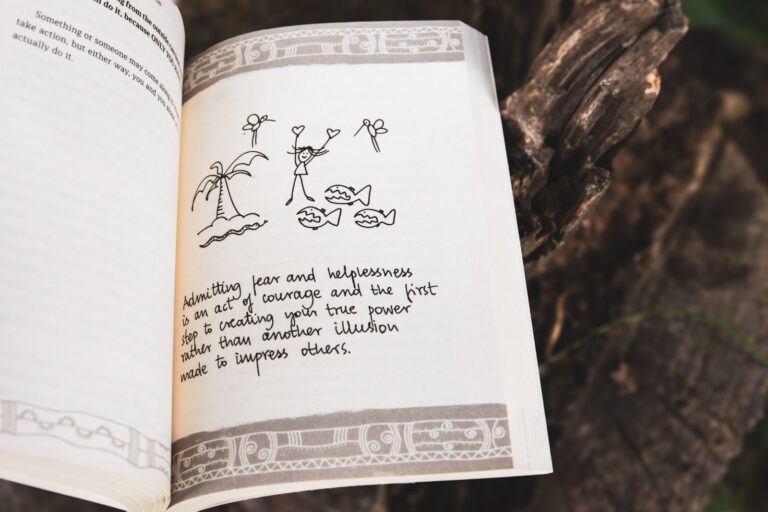 from the outside
do it, because ONLY YOU
Something or someone may come along
take action, but either way, you and you
actually do it.
Admitting fear and helplessness
is an act of courage and the first
step to creating your true power
rather than another illusion
made to impress others.